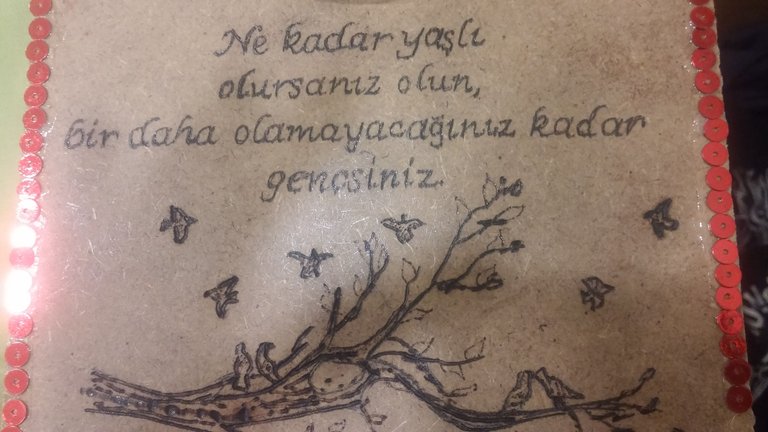 Ne kadar yaşlı
olursanız olun,
bir daha olamayacağınız kadar
gençsiniz.